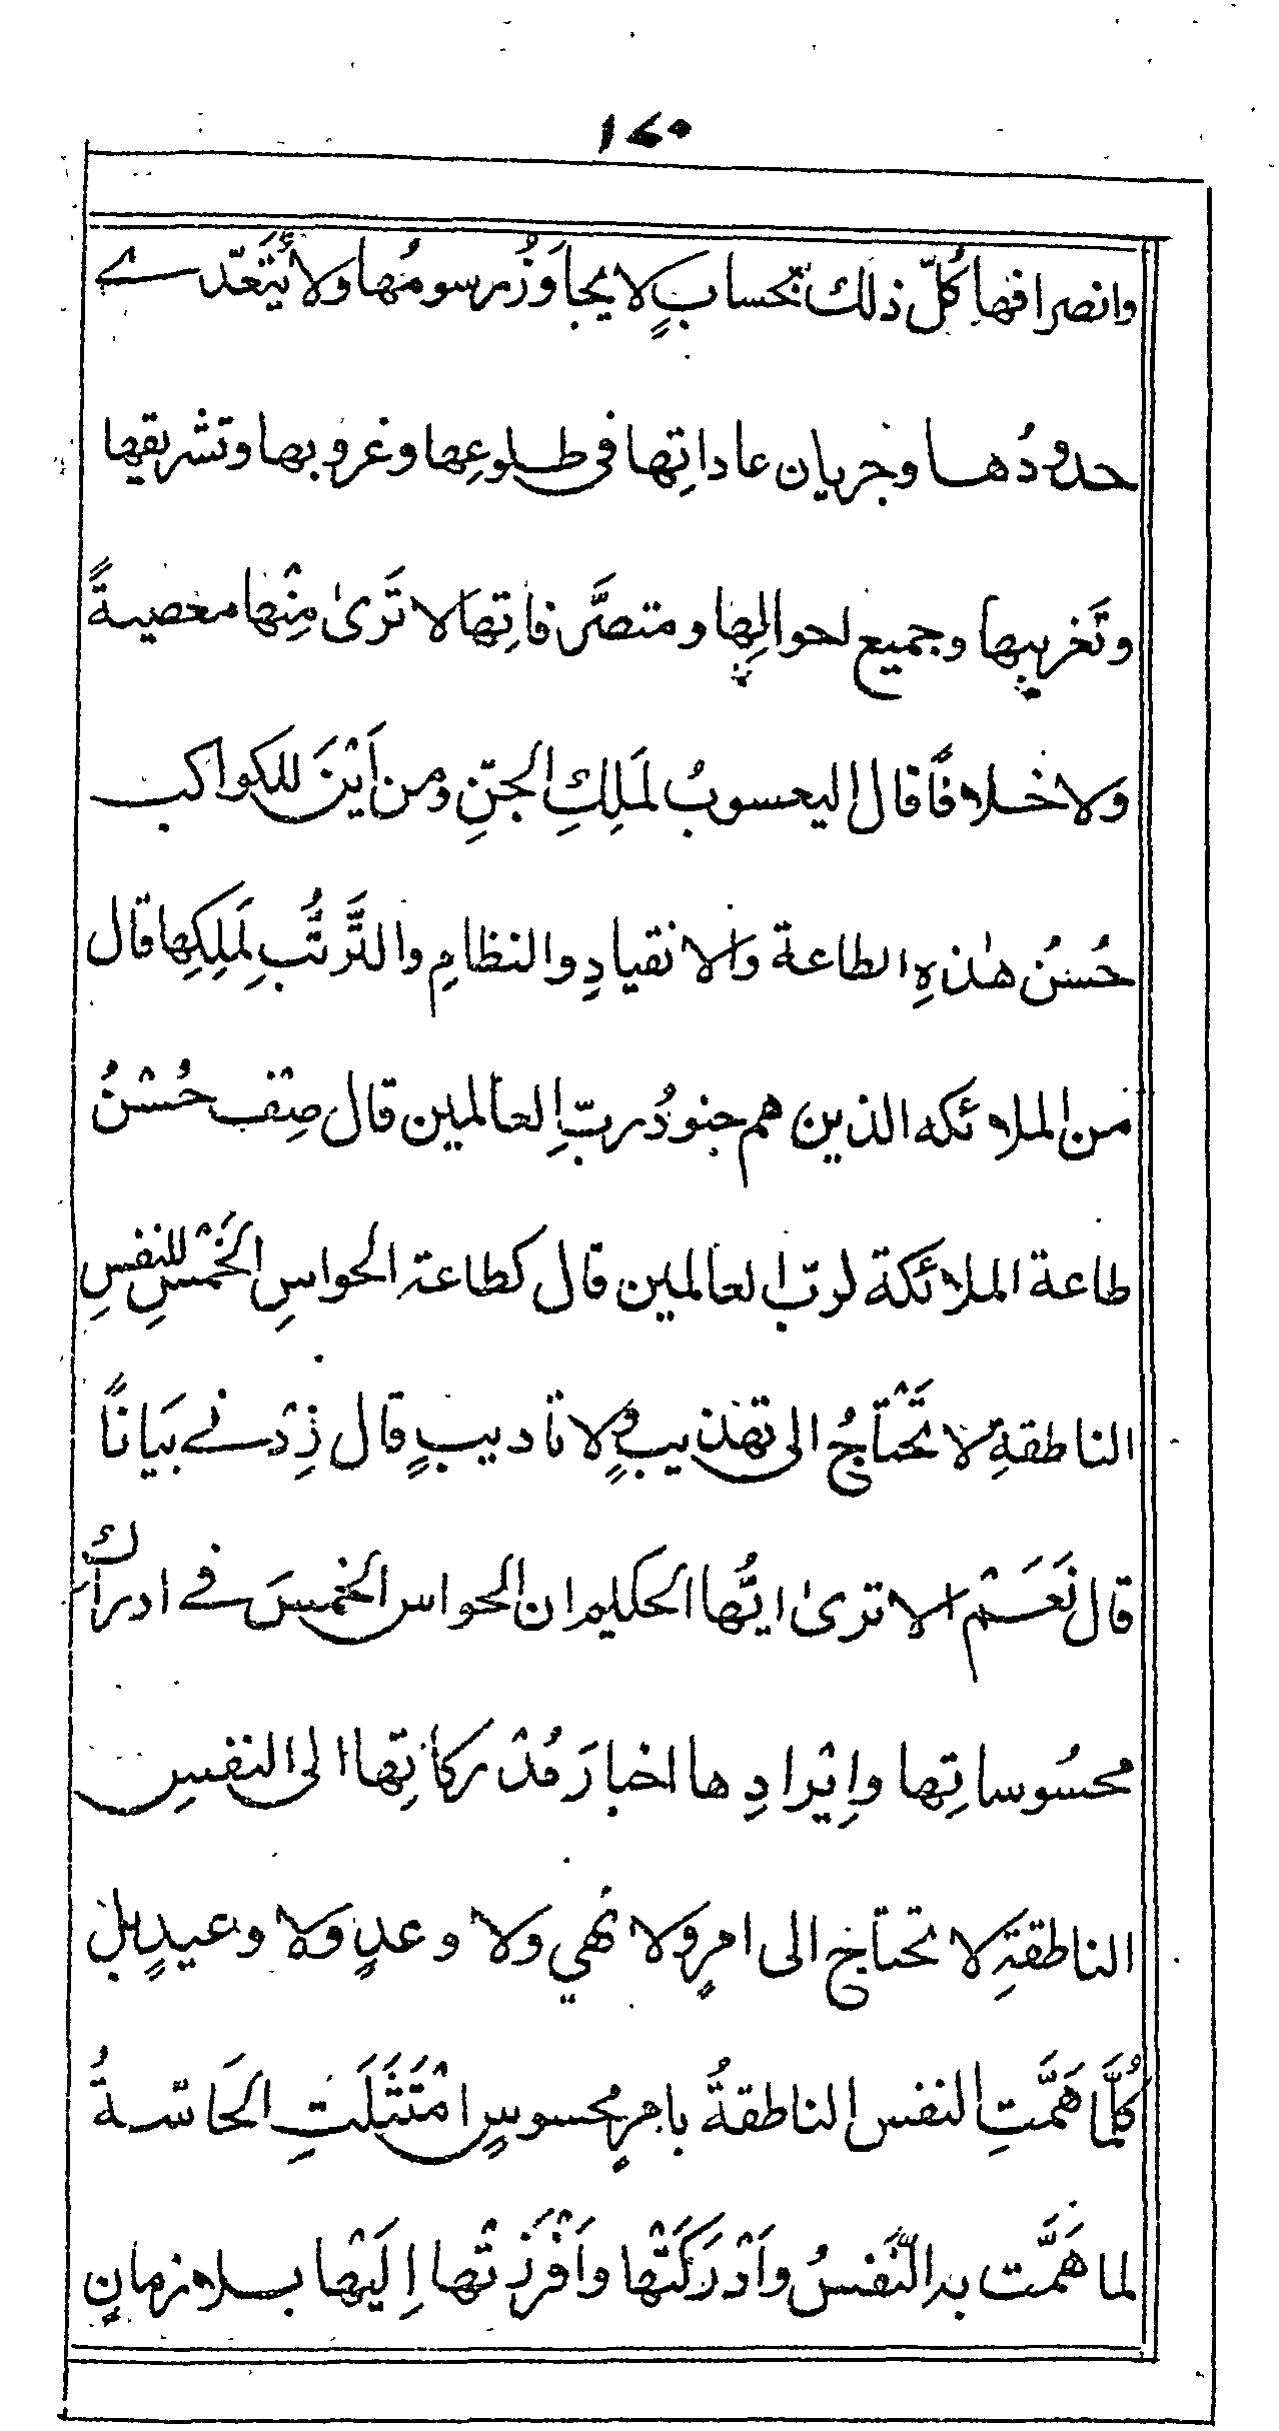 ١٤٥
وانصرافها كُلّ ذلك بحسابٍ لا يجاوَزُ رسومُها ولا يُتَعَدّے
حدودُها وجريان عاداتِها فى طلوعِها وغروبها وتشريقها
وتَغريبها وجميع احوالِها ومتصرَّفاتِها لا تَرىٰ مِنْها معصيةً
ولا خلافًا قال اليعسوبُ لمَلِكِ الجنِّ ومن اَيْنَ للكواكب
حُسنُ هٰذهِ الطاعة والانقيادِ والنظامِ والتَّرتُّبِ لمَلِكِها قال
من الملائكه الذين هم جنودُ ربِّ العالمين قال صِفْ حُسْنُ
طاعة الملائكة لربّ العالمين قال كطاعة الحواسِ الخَمْسِ للنفسِ
الناطقةِ لا تَحْتاجُ الى تهذيبٍ ولا تاديبٍ قال زِدْنے بيَاناً
قال نَعَمْ الا ترىٰ ايُّها الحكيم ان الحواس الخمسَ فے ادراك
محسُوساتِها واِيْرادِها اخبارَ مُدْركاتِها الى النفسِ
الناطقةِ لا تحتاج الى امرٍ ولا نهيٍ ولا وعدٍ ولا وعيدٍ بل
كُلَّما هَمَّتِ النفس الناطقةُ بامرٍ محسوسٍ امْتَثَلَتِ الحَاسّةُ
لما هَمَّت به النَّفسُ واَدْرَكَتْها واَفْرَزَتْها اِلَيْها بلا زمانٍ